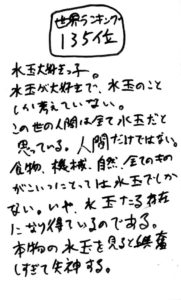 世界ランキング
135位
水玉大好きっ子。
水玉が大好きで、水玉のこと
しか考えていない。
この世の人間は全て水玉だと
思っている。人間だけではない。
食物、機械、自然、全てのもの
がこいつにとっては水玉でしか
ない。いや、水玉たる存在
になり得ているのである。
本物の水玉を見ると興奮
しすぎて失神する。